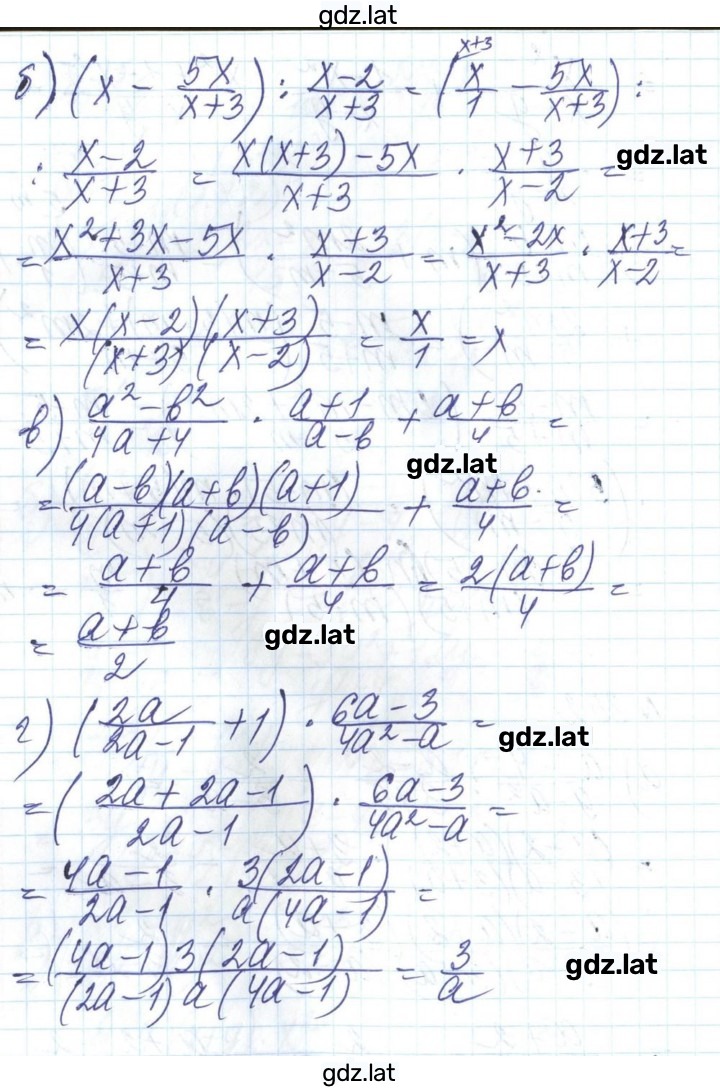 gdz.lat
б) (x - 5x/(x+3)) : (x-2)/(x+3) = (x/1 ^(x+3) - 5x/(x+3)) :
: (x-2)/(x+3) = (x(x+3)-5x)/(x+3) · (x+3)/(x-2) = gdz.lat
= (x²+3x-5x)/(x+3) · (x+3)/(x-2) = (x²-2x)/(x+3) · (x+3)/(x-2) =
= (x(x-2)(x+3))/((x+3)(x-2)) = x/1 = x
в) (a²-b²)/(4a+4) · (a+1)/(a-b) + (a+b)/4 =
gdz.lat
= ((a-b)(a+b)(a+1))/(4(a+1)(a-b)) + (a+b)/4 =
= (a+b)/4 + (a+b)/4 = (2(a+b))/4 =
= (a+b)/2 gdz.lat
г) (2a/(2a-1) + 1) · (6a-3)/(4a²-a) = gdz.lat
= ((2a+2a-1)/(2a-1)) · (6a-3)/(4a²-a) =
= (4a-1)/(2a-1) · (3(2a-1))/(a(4a-1)) =
= ((4a-1)3(2a-1))/((2a-1)a(4a-1)) = 3/a gdz.lat
gdz.lat